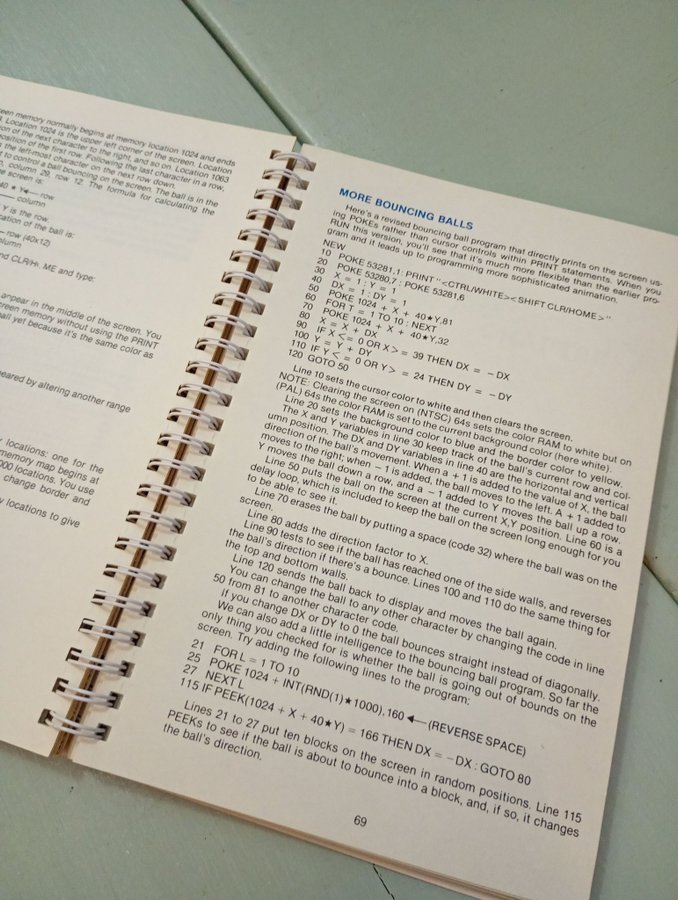 een memory normally begins at memory location 1024 and ends
Location 1024 is the upper left corner of the screen. Location
ion of the next character to the right, and so on. Location 1063
position of the first row. Following the last character in a row,
the left-most character on the next row down.
t to control a ball bouncing on the screen. The ball is in the
, column 29, row 12. The formula for calculating the
e screen is:
40 ★ Y◄— row
— column
Y is the row.
cation of the ball is:
— row (40x12)
olumn
nd CLR/H. ME and type:
appear in the middle of the screen. You
creen memory without using the PRINT
all yet because it's the same color as
eared by altering another range
locations: one for the
memory map begins at
000 locations. You use
change border and
y locations to give
MORE BOUNCING BALLS
Here's a revised bouncing ball program that directly prints on the screen us-
ing POKEs rather than cursor controls within PRINT statements. When you
RUN this version, you'll see that it's much more flexible than the earlier pro-
gram and it leads up to programming more sophisticated animation.
NEW
10 POKE 53281,1: PRINT "<CTRL/WHITE><SHIFT CLR/HOME>"
20 POKE 53280,7 : POKE 53281,6
30 X = 1 : Y = 1
40 DX = 1 : DY = 1
50 POKE 1024 + X + 40★Y,81
60 FOR T = 1 TO 10 : NEXT
70 POKE 1024 + X + 40★Y,32
80 X = X + DX
90 IF X < = 0 OR X > = 39 THEN DX = – DX
100 Y = Y + DY
110 IF Y < = 0 OR Y > = 24 THEN DY = – DY
120 GOTO 50
Line 10 sets the cursor color to white and then clears the screen.
NOTE: Clearing the screen on (NTSC) 64s sets the color RAM to white but on
(PAL) 64s the color RAM is set to the current background color (here white).
Line 20 sets the background color to blue and the border color to yellow.
The X and Y variables in line 30 keep track of the ball's current row and col-
umn position. The DX and DY variables in line 40 are the horizontal and vertical
direction of the ball's movement. When a + 1 is added to the value of X, the ball
moves to the right; when – 1 is added, the ball moves to the left. A + 1 added to
Y moves the ball down a row, and a – 1 added to Y moves the ball up a row.
Line 50 puts the ball on the screen at the current X,Y position. Line 60 is a
delay loop, which is included to keep the ball on the screen long enough for you
to be able to see it.
Line 70 erases the ball by putting a space (code 32) where the ball was on the
screen.
Line 80 adds the direction factor to X.
Line 90 tests to see if the ball has reached one of the side walls, and reverses
the ball's direction if there's a bounce. Lines 100 and 110 do the same thing for
the top and bottom walls.
Line 120 sends the ball back to display and moves the ball again.
You can change the ball to any other character by changing the code in line
50 from 81 to another character code.
If you change DX or DY to 0 the ball bounces straight instead of diagonally.
We can also add a little intelligence to the bouncing ball program. So far the
only thing you checked for is whether the ball is going out of bounds on the
screen. Try adding the following lines to the program:
21 FOR L = 1 TO 10
25 POKE 1024 + INT(RND(1)★1000),160 ◄— (REVERSE SPACE)
27 NEXT L
115 IF PEEK(1024 + X + 40★Y) = 166 THEN DX = – DX : GOTO 80
Lines 21 to 27 put ten blocks on the screen in random positions. Line 115
PEEKs to see if the ball is about to bounce into a block, and, if so, it changes
the ball's direction.
69